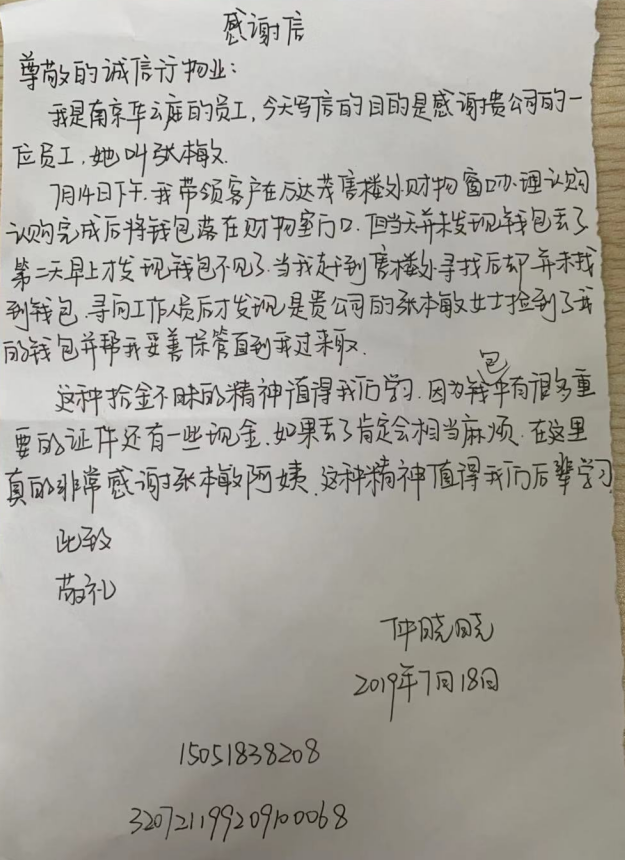 感谢信
尊敬的诚信行物业：
我是南京华云庭的员工，今天写信的目的是感谢贵公司的一
位员工，她叫张梅敏.
7月14日下午.我带领客户在万达茂售楼处财物窗口办理认购
认购完成后将钱包落在财物室门口.但当天并未发现钱包丢了
第二天早上才发现钱包不见了.当我赶到售楼处寻找后却并未找
到钱包.寻问工作人员后才发现是贵公司的张梅敏女士捡到了我
的钱包并帮我妥善保管直到我过来取.
这种拾金不昧的精神值得我们学习.因为钱包有很多重
要的证件还有一些现金.如果丢了肯定会相当麻烦.在这里
真的非常感谢张梅敏阿姨.这种精神值得我们后辈学习
此致
敬礼
仲晓晓
2019年7月18日
15051838208
320721199209100068